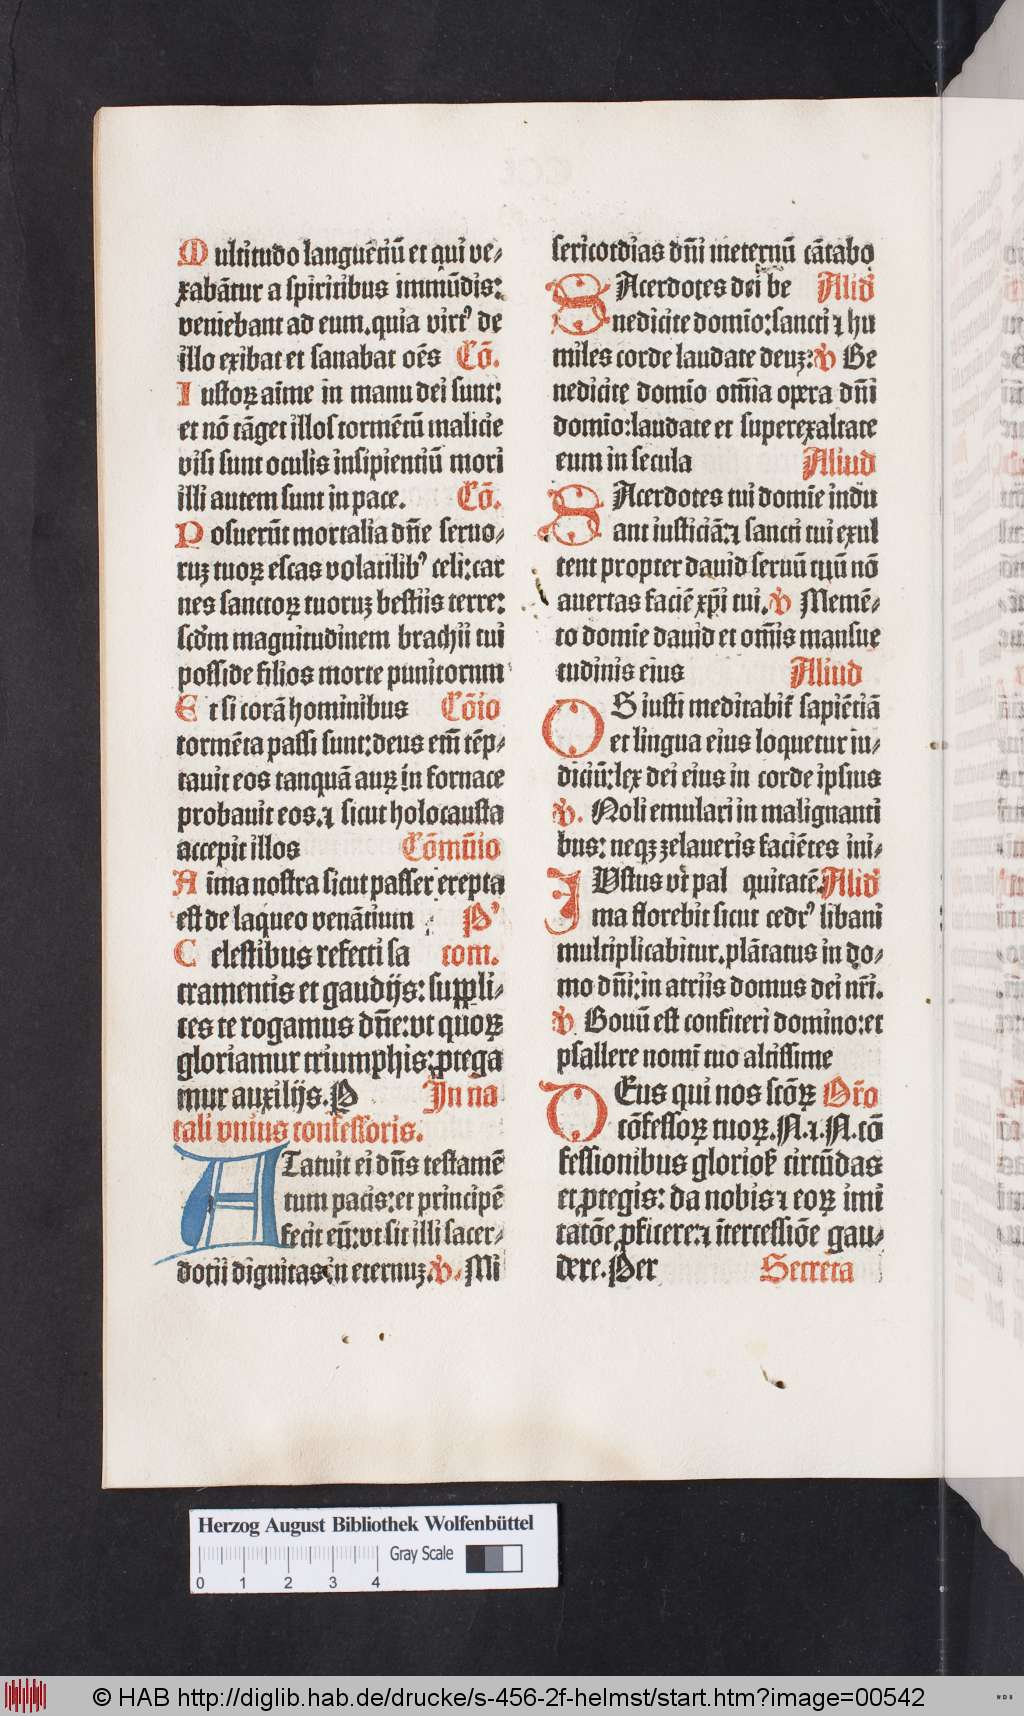 Multitudo languētiū et qui ve⸗
xabātur a spiritibus immūdis:
veniebant ad eum. quia virt⁹ de
illo exibat et sanabat oēs Cō.
Iustoꝝ aīme in manu dei sunt:
et nō tāget illos tormētū malicie
visi sunt oculis insipientiū mori
illi autem sunt in pace. Cō.
Posuerūt mortalia dn̄e seruo⸗
ruꝫ tuoꝝ escas volatilib⁹ celi: car
nes sanctoꝝ tuoruꝫ bestiis terre:
scdm̄ magnitudinem brachii tui
posside filios morte punitorum
Et si corā hominibus Cōīo
tormēta passi sunt: deus em̄ tēp⸗
tauit eos tanquā auꝝ in fornace
probauit eos. ⁊ sicut holocausta
accepit illos Cōmūio
Aīma nostra sicut passer erepta
est de laqueo venātium P’
Celestibus refecti sa com.
cramentis et gaudijs: suppli⸗
tes te rogamus dn̄e: vt quoꝝ
gloriamur triumphis: ꝓtega
mur auxilijs. P In na
tali vnius confessoris.
Statuit ei dn̄s testamē
tum pacis: et principē
fecit eū: vt sit illi sacer⸗
dotii dignitas in eternuꝫ. ℣. Mi
sericordias dn̄i ineternū cātabo
SAcerdotes dei be Aliđ
nedicite domīo: sancti ⁊ hu
miles corde laudate deuꝫ: ℣ Be
nedicite domīo om̄ia opera dn̄i
domīo: laudate et superexaltate
eum in secula Aliud
SAcerdotes tui domīe indu
ant iusticiā: ⁊ sancti tui exul
tent propter dauid seruū tuū nō
auertas faciē xp̄i tui. ℣ Memē⸗
to domīe dauid et om̄is mansue
tudinis eius Aliud
OS iusti meditabit̄ sapiētiā
et lingua eius loquetur iu⸗
diciū: lex dei eius in corde ipsius
℣. Noli emulari in malignanti
bus: neqꝫ zelaueris faciētes ini⸗
IUstus vt̄ pal quitatē. Aliđ
ma florebit sicut cedr⁹ libani
multiplicabitur. plātatus in do⸗
mo dn̄i: in atriis domus dei nr̄i.
℣ Bonū est confiteri domino: et
psallere nomī tuo altissime
DEus qui nos scōꝝ Or̄o
cōfessoꝝ tuoꝝ. N. ⁊. N. cō
fessionibus gloriosꝭ circūdas
et ꝓtegis: da nobis ⁊ eoꝝ imi
tatōe ꝓficere: ⁊ ītercessiōe gau⸗
dere. Per Secrēta
Herzog August Bibliothek Wolfenbüttel
Gray Scale
0 1 2 3 4
© HAB http://diglib.hab.de/drucke/s-456-2f-helmst/start.htm?image=00542